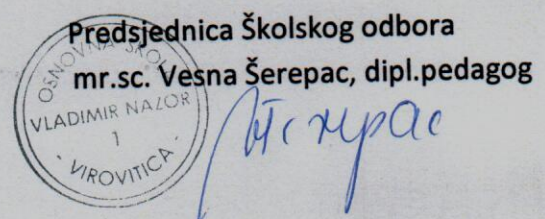 Predsjednica Školskog odbora
mr.sc. Vesna Šerepac, dipl.pedagog
OSNOVNA ŠKOLA
VLADIMIR NAZOR
1
VIROVITICA